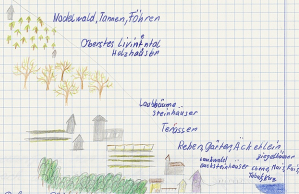 Nadelwald, Tannen, Föhren
Oberstes Livinental
Holzhäuser
Laubbäume
Steinhäuser
Terassen
Reben, Gärten, Äckerlein,
Ziegeldächer
Laubwald
Mais